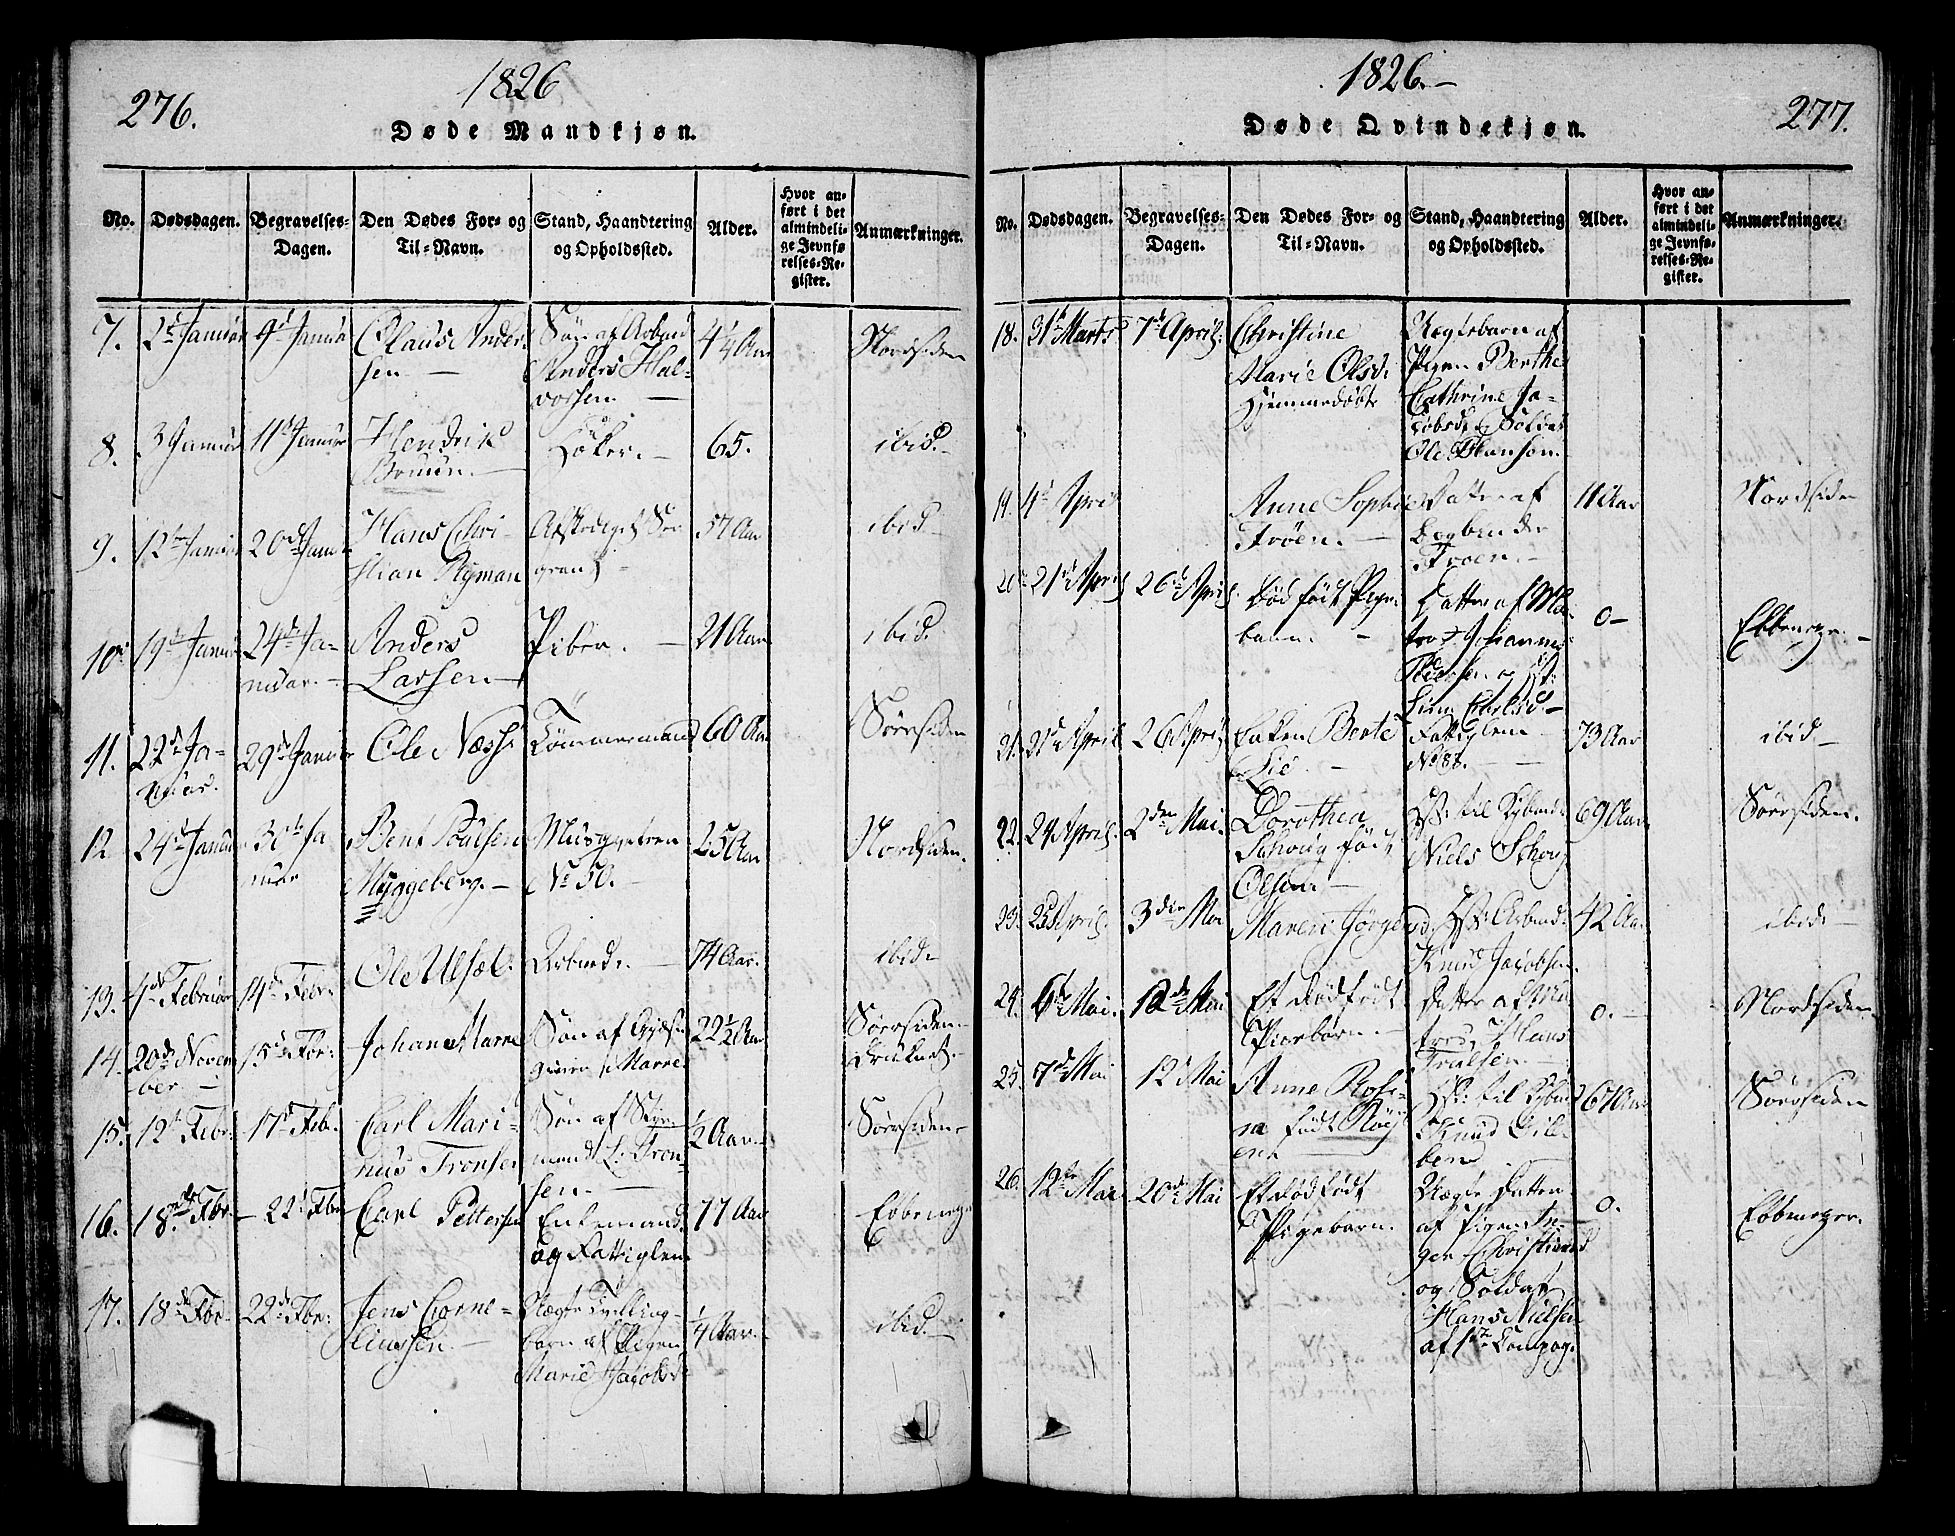 276.
1826
Døde Mandkjøn.
No.
Dødsdagen.
Begravelses-
Dagen.
Den Dødes For- og
Til-Navn.
Stand, Haandtering
og Opholdssted.
Alder.
Hvor an-
ført i det
almindeli-
ge Jevnfø-
relses-Re-
gister.
Anmærkninger.
7.
2d Januar
9d Januar
Claus Ander-
sen
Søn af Arbmd
Anders Hal-
vorsen
4 1/4 Aar
Nordsiden
8.
3 Januar
11d Januar
Hendrik
Bruun.
Høker.
65.
ibid.
9.
12te Januar
20de Janu
Hans Chri-
stian Nyman
Afskediget Ser-
geant
57 Aar
ibid
10.
19d Januar
24de Ja-
nuar.
Anders
Larsen
Piber.
21 Aar
ibid.
11.
22de Ja-
nuar.
29de Januar
Ole Næss
Tømmermand
60 Aar
Sørsiden
12
24d Januar
30te Ja
nuar
Bent Poulsen
Myggeberg.
No 50.
25 Aar
Nordsiden.
13.
4de Februar
14de Febr:
Ole Ulsæt.
Arbmd.
74 Aar.
ibid
14.
20de Novem
ber.
15de Febr:
Johan Marre
Søn af
Marre
22 1/2 Aar
Sørsiden
Druknet.
15.
12te Febr:
17d Feb.
Carl Mari-
nus Tronsen
Søn af Styr-
mand L. Tron-
sen.
1/2 Aar
Sørsiden
16.
18de Fbr.
22d Fbr
Carl Pettersen
Enkemand
og Fattiglem
77 Aar
Ebbeneze
17.
18de Fbr
22de Fbr:
Jens Corne-
liussen
Uægte Tvilling-
barn af Pigen
Marie Jacobsd
1/4 Aar.
ibid.
1826.
277.
Døde Qvindekjøn.
No.
Dødsdagen.
Begravelses-
Dagen.
Den Dødes For- og
Til-Navn.
Stand, Haandtering
og Opholdssted.
Alder.
Hvor an-
ført i det
almindeli-
ge Jevnfø-
relses-Re-
gister.
Anmærkninger.
18.
31te Marts
7de April.
Christine
Marie Olsd:
Hjemmedøbt
Uægtebarn af
Pigen Berthe
Cathrine Ja-
cobsd. & Soldat
Ole Hanson.
19.
4d April
Anne Sophie
Trøen.
Datter af
Bogbinder
Troen.
11 Aar
Nordsiden
20
21de April
26de April
Død født Pige-
barn.
Datter af Ma-
tros Johannes
0
Ebbenezer.
21.
21de April
26 April
Enken Berte
Lie
Fattiglem
No 88.
73 Aar
ibid
22.
24 April.
2den Mai.
Dorothea
Schoug født
Olsen.
Hst: til Arbmd:
Niels Schoug
69 Aar
Sørsiden.
23.
25 April.
3den Mai
Maren Jørgensd.
Hst: Arbmd:
Knud Jacobsen
42 Aar
ibid
24.
6te Mai.
12de Mai
Et dødfødt
Pigebarn.
Datter af Ma
tros Hans
Trulsen
0.
Nordsiden
25.
7de Mai
12 Mai
Anne Rosi-
na født Røy-
en
Hst: til Arbmd
Knud Gul-
bens
67 Aar
Sørsiden
26.
12te Mai
20de Mai
Et dødfødt
Pigebarn.
Uægte Datter
af Pigen In-
ger Christiansd
og Soldat
Hans Nielsen
af 1ste Compag.
0.
Ebbenezer.